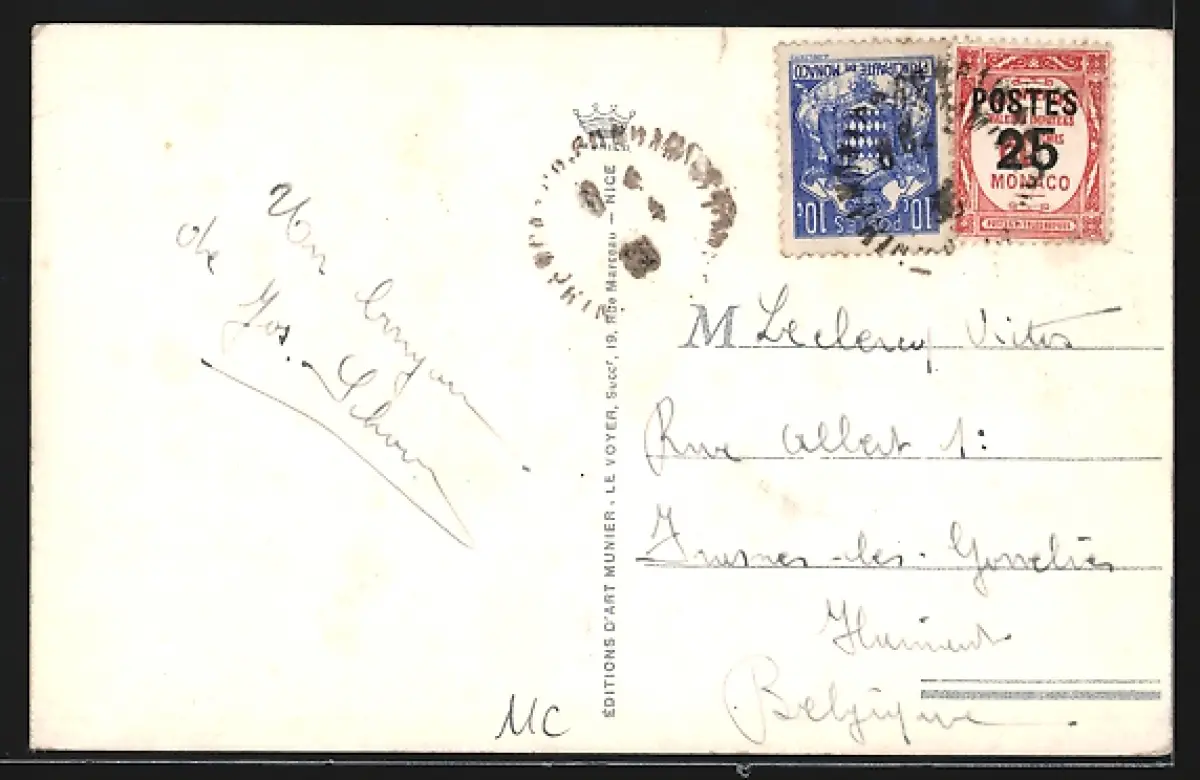 Un
de
Jos.
PRINCIPAUTÉ DE MONACO
POSTES
10c 10c
POSTES
25
MONACO
M Leclercq Victor
Rue Albert 1:
Frasnes-les-Gosselies
Hainaut
Belgique.
ÉDITIONS D'ART MUNIER, LE VOYER, Succr, 19, Rue Marceau — NICE
MC